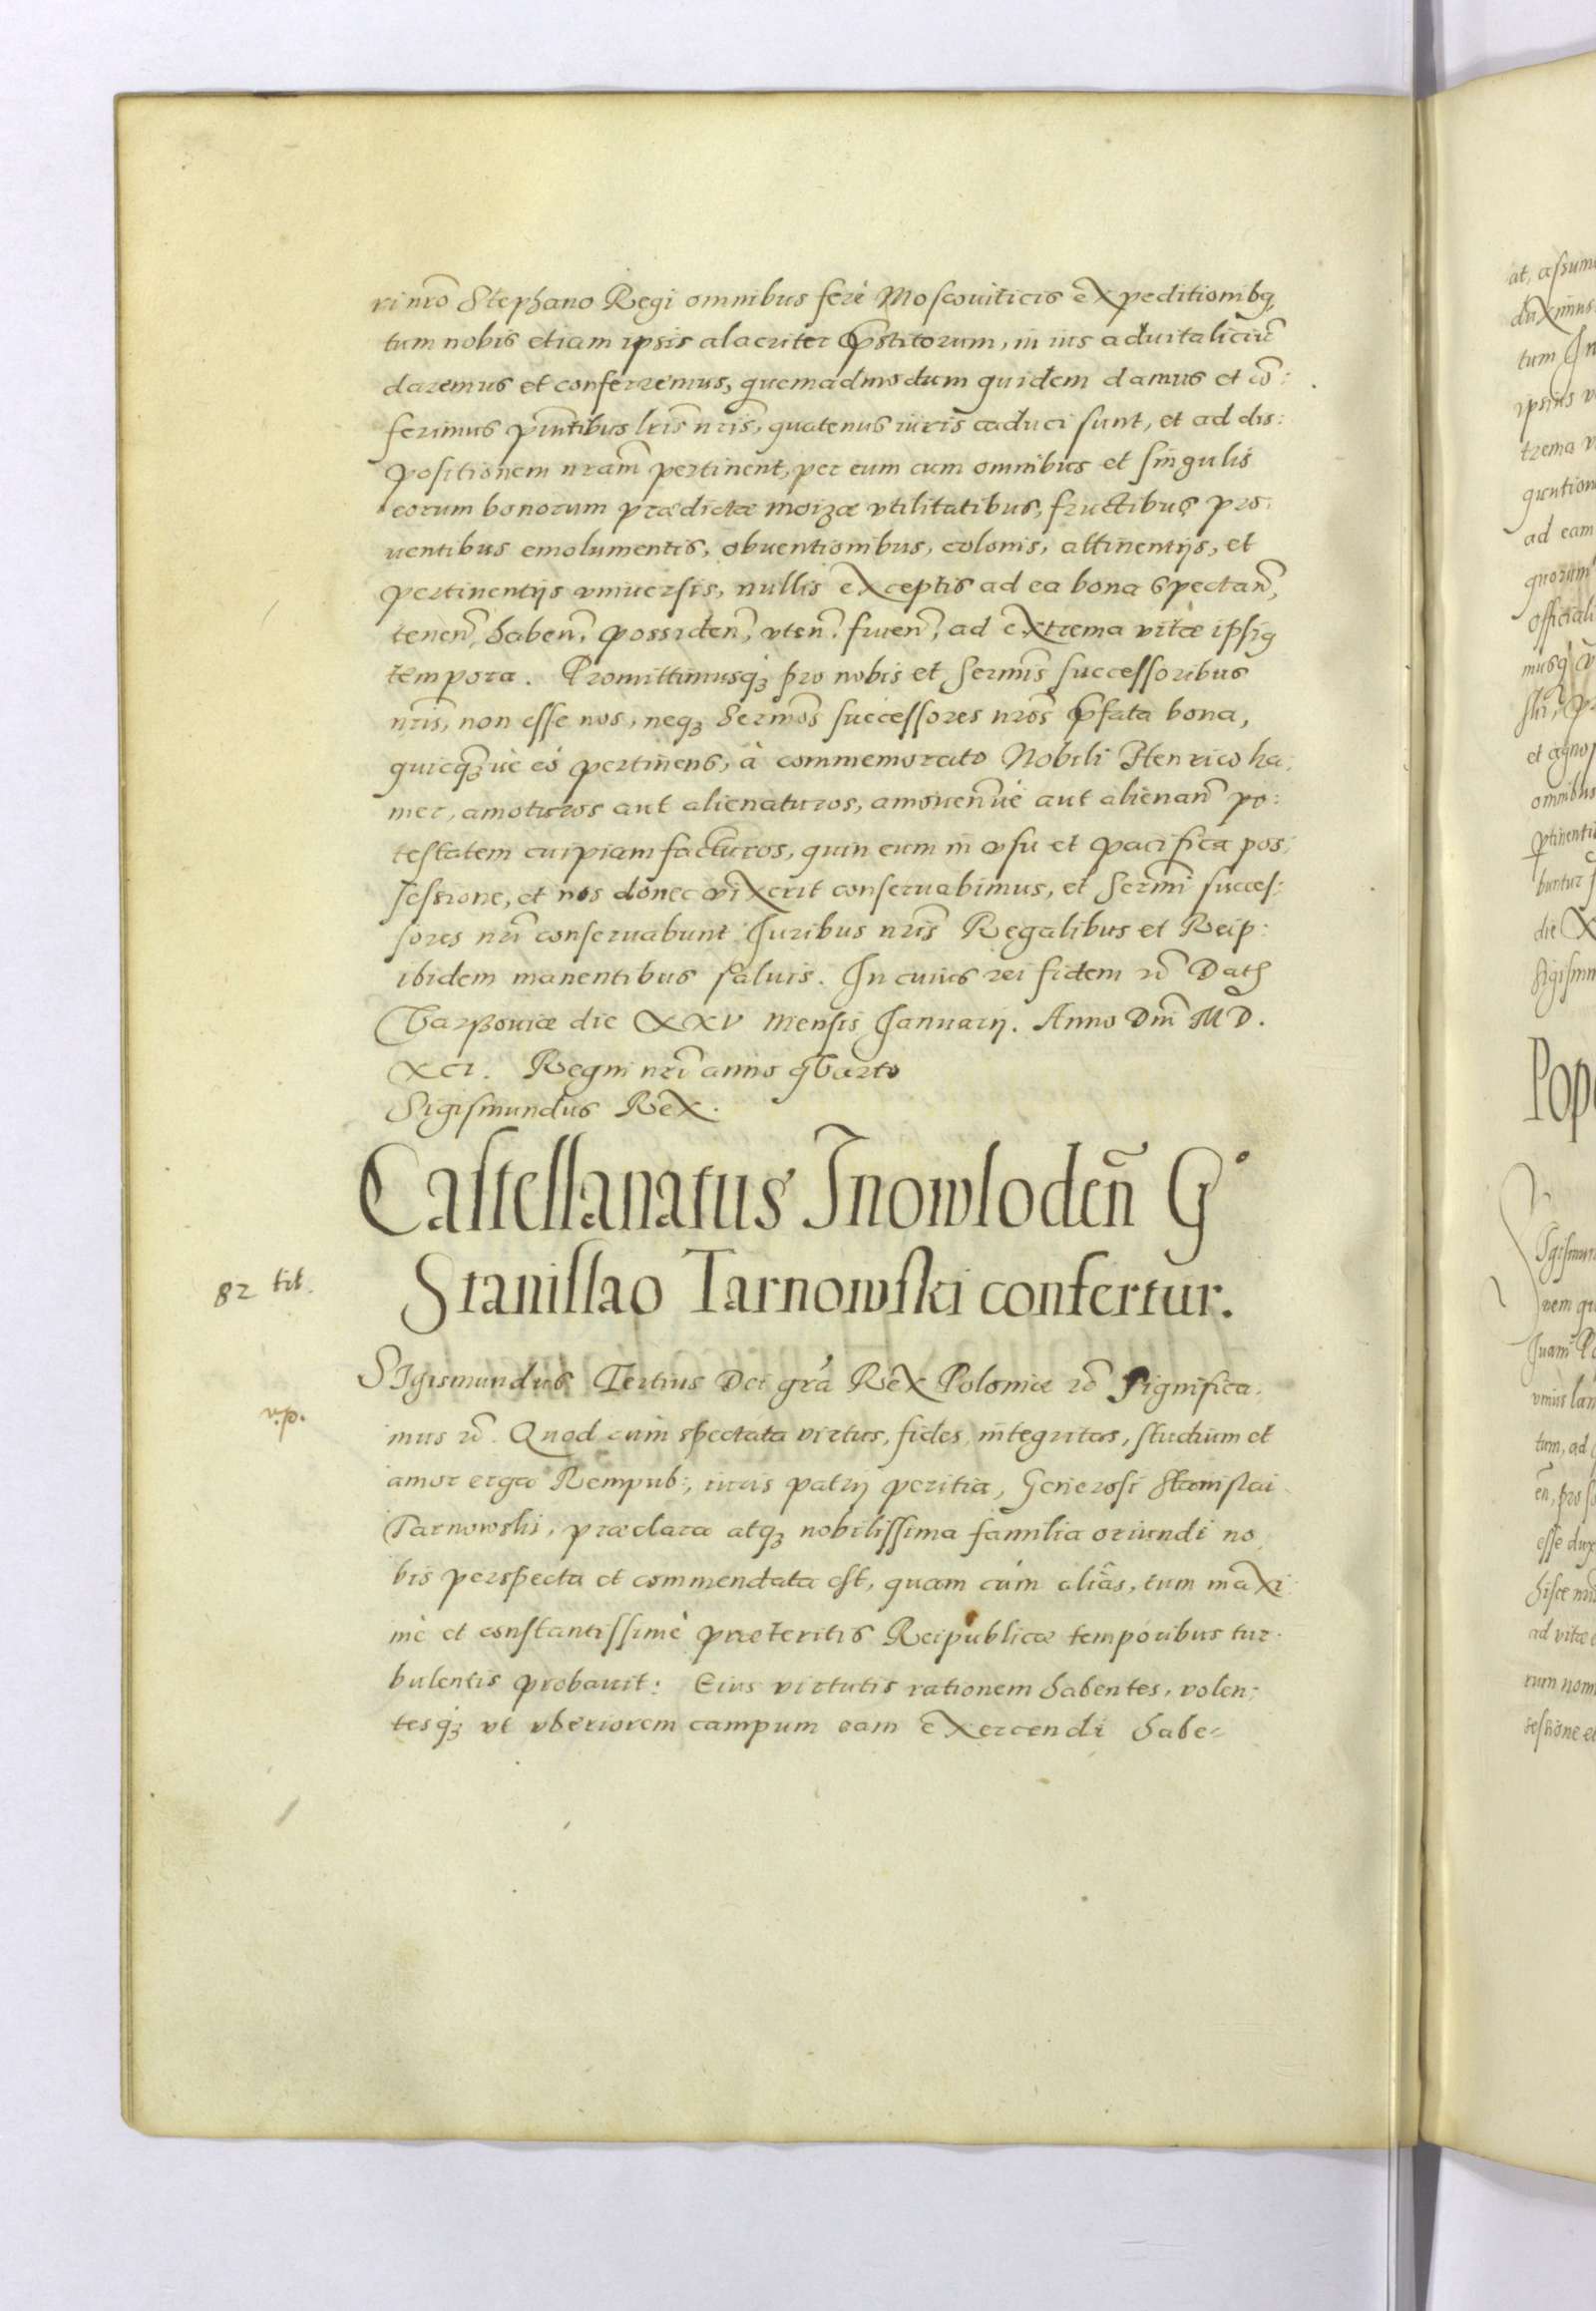 ri nr̃o Stephano Regi omnibus ferè Moscouiticis expeditionibq,
tum nobis etiam ipsis alacriter p̃stitorum, in ius aduitaliciũ
daremus et conferremus, quemadmodum quidem damus et cõ:
ferimus pñtibus lr̃is nr̃is, quatenus iuris caduci sunt, et ad dis:
positionem nr̃am pertinent, per eum cum omnibus et singulis
eorum bonorum prædictæ moizæ vtilitatibus, fructibus pro:
uentibus emolumentis, obuentionibus, colonis, attinentijs, et
pertinentijs vniuersis, nullis exceptis ad ea bona spectan̄,
tenen̄, haben̄, possiden̄, vten̄, fruen̄, ad extrema vitæ ipsiq
tempora. Promittimusq́ȝ pro nobis et Sermĩs successoribus
nr̃is, non esse nos, neqȝ Sermõs successores nr̃os p̃fata bona,
quicq̃ȝuè eó pertinens, à commemorato Nobili Henrico ha:
mer, amoturos aut alienaturos, amouen̄uè aut alienan̄ po:
testatem cuipiam facturos, quin eum in vsu et pacifica pos:
sessione, et nos donec vixerit conseruabimus, et Sermĩ succes:
sores nr̃i conseruabunt Juribus nr̃is Regalibus et Reip:
ibidem manentibus saluis. In cuius rei fidem rc̃ Dath
Varssouiæ die XXV Mensis Januarij. Anno Dnĩ MD.
XCI. Regni nr̃i anno qVarto
Sigismundus Rex.
Castellanatus Inowloden̄ G°
Stanislao Tarnowski confertur.
82 tit.
SIgismundus Tertius Dei gr̃a Rex Poloniæ rc̃ Significa:
v.p.
mus rc̃. Quod cum spectata virtus, fides, integritas, studium et
amor erga Rempub:, iuris patrij peritia, Generosi Stanislai
Tarnowski, præclara atqȝ nobilissima familia oriundi no:
bis perspecta et commendata est, quam cùm aliâs, tum maxi:
mè et constantissimè præteritis Reipublicæ temporibus tur:
bulentis probauit: Eius virtutis rationem habentes, volen:
tesq́ȝ vt vberiorem campum eam exercendi habe=